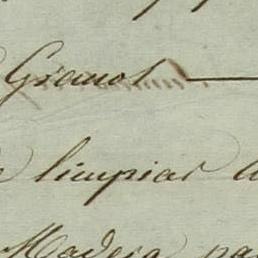 Granos
limpiar
Madera pa